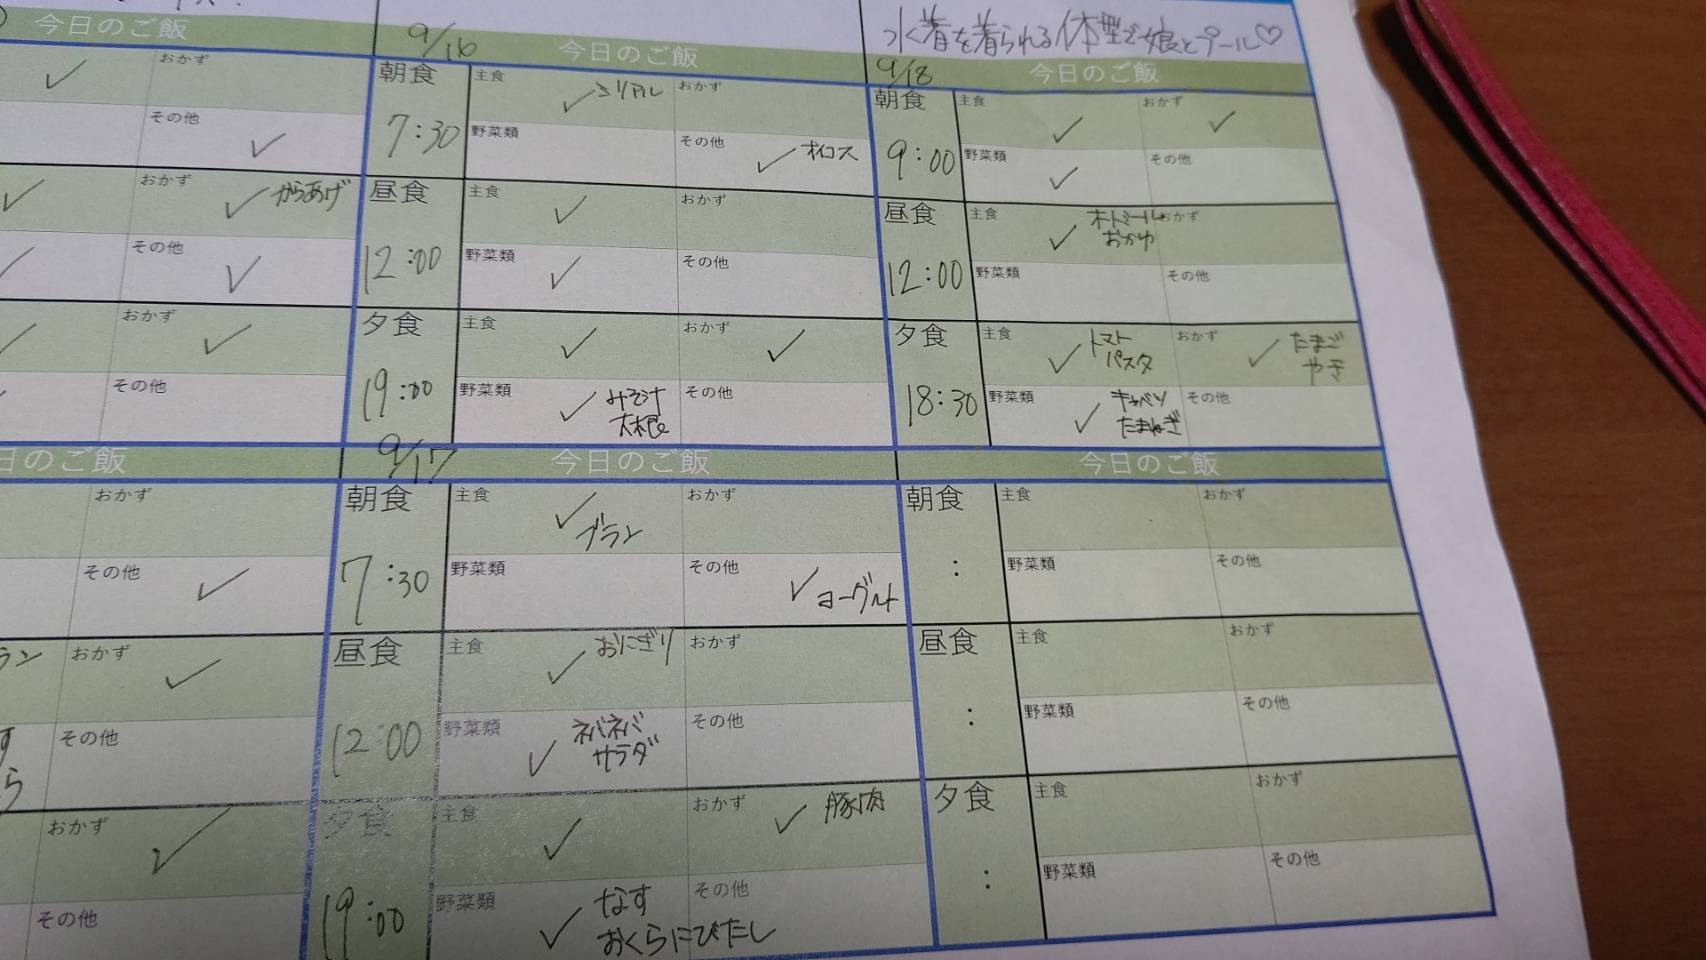 水着を着られる体型で娘とプール♡
今日のご飯
おかず
その他
おかず からあげ
その他
おかず
その他
9/16 今日のご飯
朝食 7:30
主食 シリアル
おかず
野菜類
その他 オイコス
昼食 12:00
主食
おかず
野菜類
その他
夕食 19:00
主食
おかず
野菜類 みそ汁
大根
その他
9/18 今日のご飯
朝食 9:00
主食
おかず
野菜類
その他
昼食 12:00
主食 オートミール
おかゆ
おかず
野菜類
その他
夕食 18:30
主食 トマト
パスタ
おかず たまご
やき
野菜類 キャベツ
たまねぎ
その他
日のご飯
おかず
その他
ラン
おかず
その他
す
ら
おかず
その他
9/17 今日のご飯
朝食 7:30
主食 ブラン
おかず
野菜類
その他 ヨーグルト
昼食 12:00
主食 おにぎり
おかず
野菜類 ネバネバ
サラダ
その他
夕食 19:00
主食
おかず 豚肉
野菜類 なす
おくらにびたし
その他
今日のご飯
朝食 :
主食
おかず
野菜類
その他
昼食 :
主食
おかず
野菜類
その他
夕食 :
主食
おかず
野菜類
その他